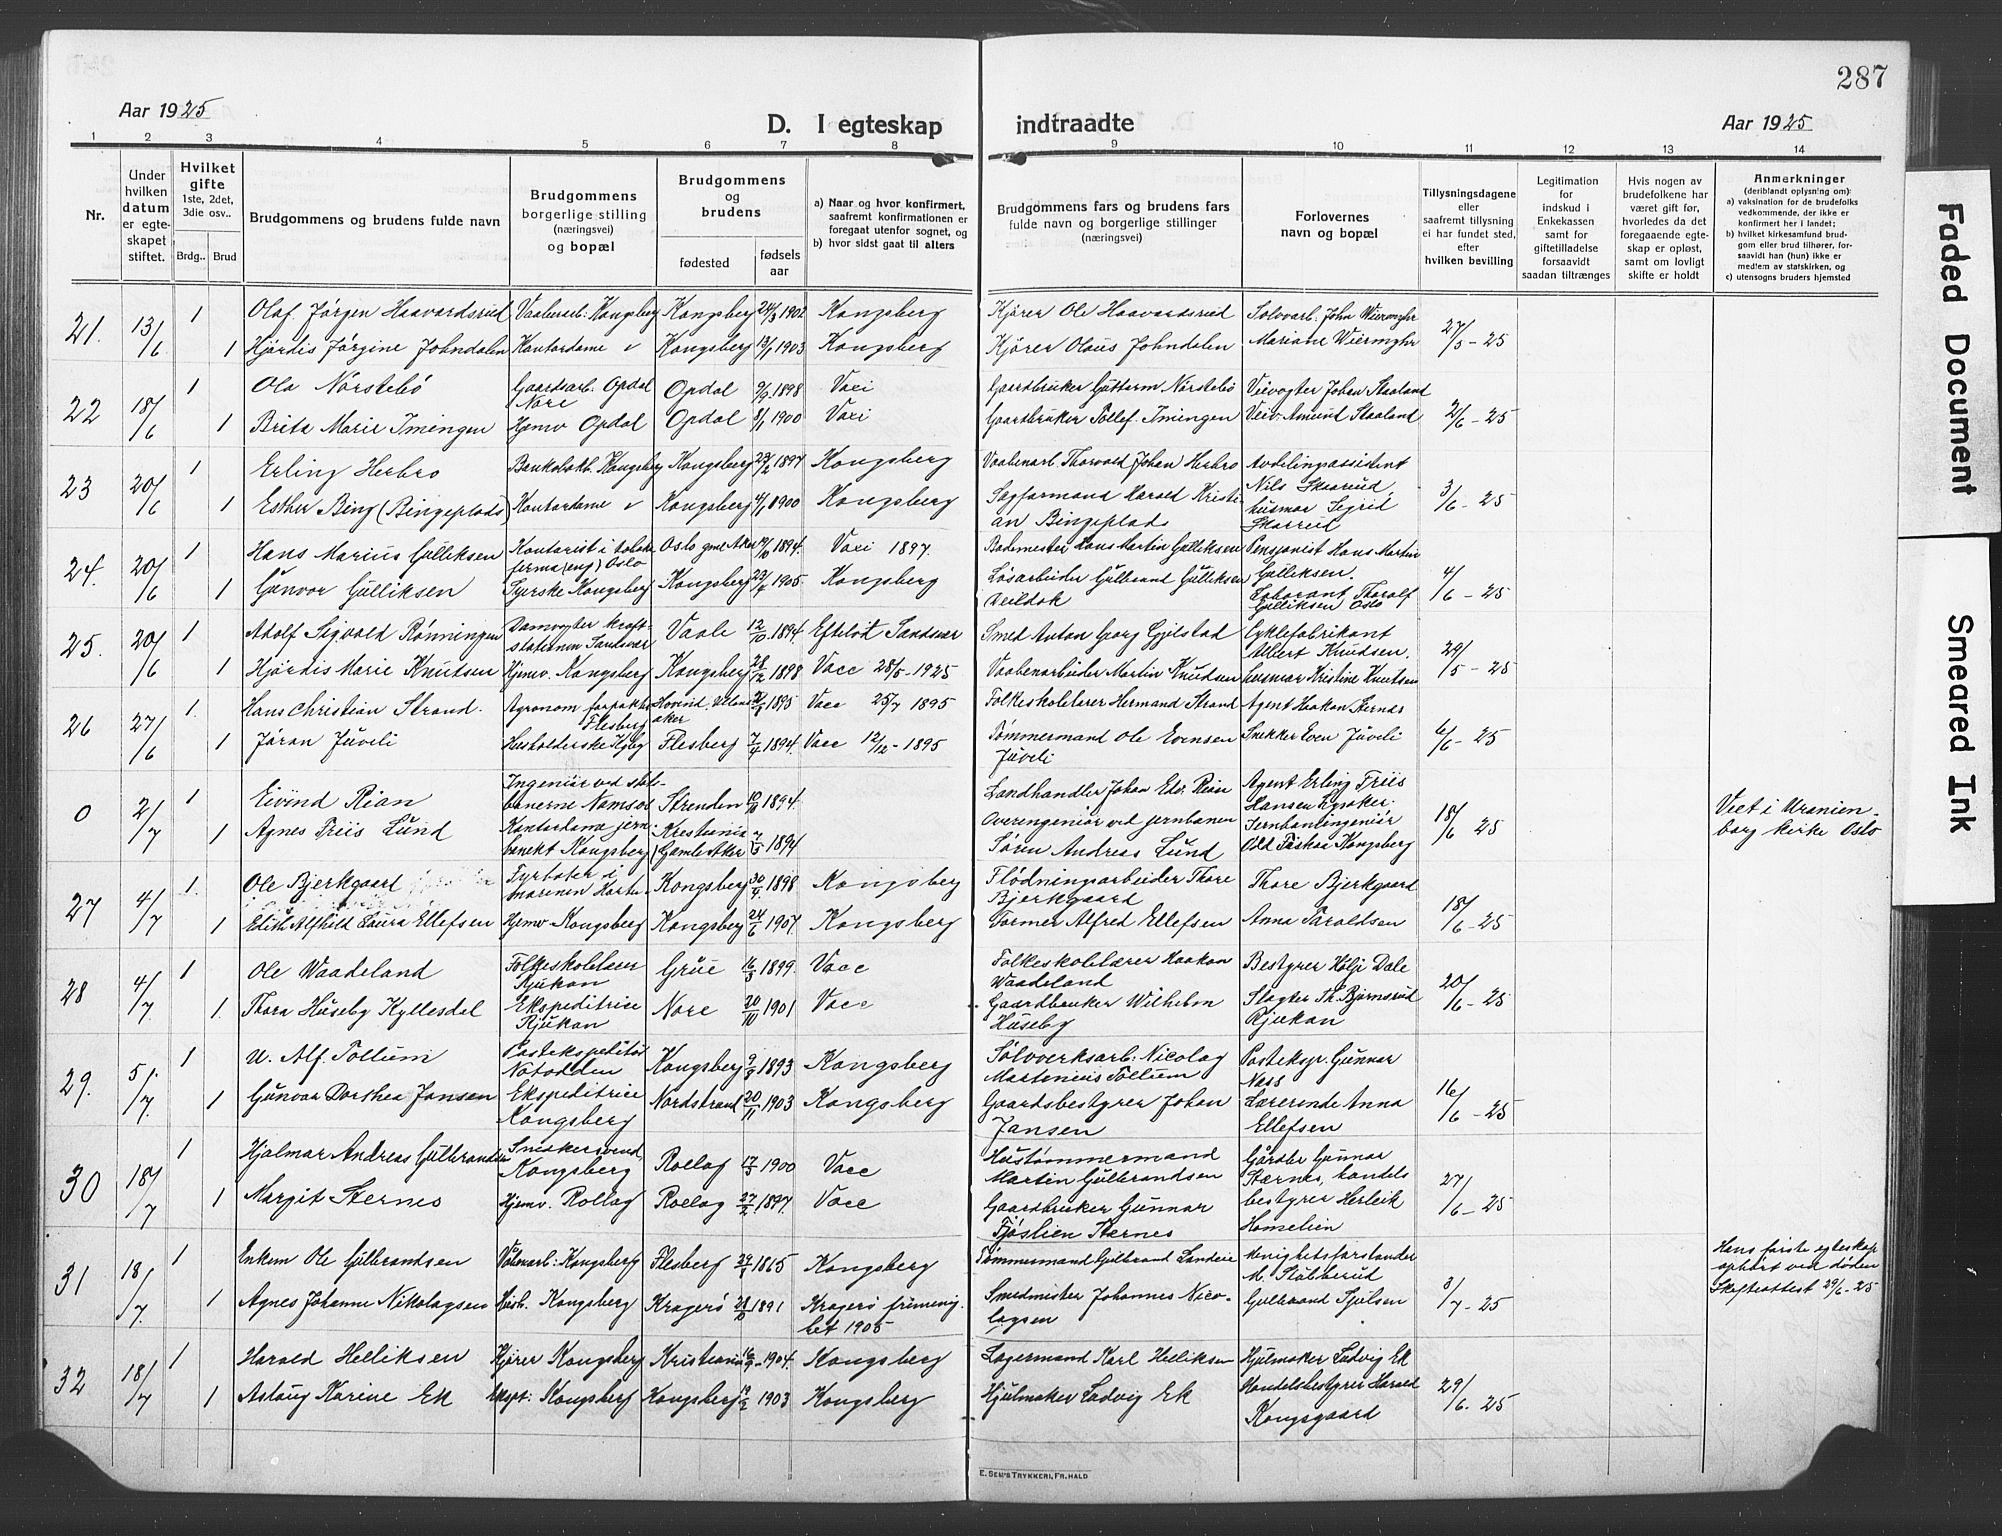 287
Aar 1925
D. I egteskap indtraadte
Aar 1925
1 2 3 4 5 6 7 8 9 10 11 12 13 14
Nr.
Under hvilken datum er egteskapet stiftet.
Hvilket gifte 1ste, 2det, 3die osv..
Brdg.. Brud
Brudgommens og brudens fulde navn
Brudgommens borgerlige stilling (næringsvei) og bopæl
Brudgommens og brudens
fødested
fødsels aar
a) Naar og hvor konfirmert, saafremt konfirmationen er foregaat utenfor sognet, og
b) hvor sidst gaat til alters
Brudgommens fars og brudens fars fulde navn og borgerlige stillinger (næringsvei)
Forlovernes navn og bopæl
Tillysningsdagene eller saafremt tillysning ei har fundet sted, efter hvilken bevilling
Legitimation for indskud i Enkekassen samt for giftetilladelse forsaavidt saadan tiltrænges
Hvis nogen av brudefolkene har været gift før, hvorledes da det foregaaende egteskap er opløst, samt om lovlig skifte er holdt
Anmerkninger (deriblandt oplysning om):
a) vaksination for de brudefolks vedkommende, der ikke er konfirmert her i landet;
b) hvilket kirkesamfund brudgom eller brud tilhører, forsaavidt han (hun) ikke er medlem av statskirken, og
c) utensogns bruders hjemsted
21. 13/6 1 Olaf Jörgen Haavardsrud Vaabenarb: Kongsberg Kongsberg 24/3 1902 Kongsberg Kjörer Ole Haavardsrud Sølvarb. John Wiermyhr 27/5-25
1 Hjördis Jörgine Johndalen Kontordame v Kongsberg 13/1 1903 Kongsberg Kjörer Olaus Johndalen Mariane Wiermyhr
22 18/6 1 Ola Nörstebö Gaardsarb. Opdal Nore Opdal 9/9 1898 Vaci Gaardbruker Guttorm Nörstebö Veivogter Johan Staaland 2/6-25
1 Brita Marie Imingen Hjemv Opdal Opdal 8/1 1900 Vaci Gaardbruker Tollef. Imingen Veiv. Amund Staaland
23 20/6 1 Erling Herbro Bankbokh. Kongsberg Kongsberg 23/2 1897 Kongsberg Vaabenarb. Thorvald Johan Herbro Avdelingsassistent Nils Skarrud, 3/6-25
1 Esther Bing (Bingeplads) Kontordame v Kongsberg 4/1 1900 Kongsberg Sagformand Harald Kristian Bingeplads husmor Sigrid Skarrud
24. 20/6 1 Hans Marius Gulliksen Kontorist i tobaksfirma (eng) Oslo Oslo gml Aker 1894. Vaci 1897. Bademester Hans Martin Gulliksen Pensjonist Hans Martin Gulliksen. 4/6-25
1 Gunvor Gulliksen Syerske Kongsberg Kongsberg 23/7 1905. Kongsberg Løsarbeider Gulbrand Gulliksen Laborant Thorolf Gulliksen Oslo
25. 20/6 1 Adolf Sigvald Rønningen Damvogter kraftstationen Sandsvær Vaale 12/10 1894. Efteløt Sandsvær Smed Anton Georg Gjelstad Cyklefabrikant Albert Knudsen. 29/5-25
1 Hjördis Marie Knutsen Hjemv. Kongsberg Kongsberg 28/12 1898 Vacc 28/5-1925 Vaabenarbeider Martin Knudsen husmor Kristine Knutsen
26 27/6 1 Hans Christian Strand. Agronom forpakter Flesberg Hovind 1895 Vacc 25/7 1895 Folkeskolelærer Hermand Strand Agent Haakon Stærnes 6/6-25
1 Jöran Juveli Husholderske Kbg Flesberg 7/4 1894. Vacc 12/12-1895 Tømmermand Ole Evensen Juveli Snekker Even Juveli
0 2/7 1 Eivind Rian Ingeniör ved statsbanerne Namsos Strinden 10/11 1894. Landhandler Johan Edv. Rian Agent Erling Friis Hansen Lysaker. 18/6 25 Viet i Uranienborg kirke Oslo
1 Agnes Friis Lund Kontordame jernbanekt Kongsberg Kristiania (Gamle Aker 1894 Overingeniör ved jernbanen Sören Andreas Lund Jernbaneingeniör Odd Kongsberg
27 4/7 1 Ole Bjerkgaard Fyrböter i marinen Horten Kongsberg 30/9 1898 Kongsberg Flödningsarbeider Thore Bjerkgaard Thore Bjerkgaard 18/6-25
1 Edith Alfhild Laura Ellefsen Hjemv Kongsberg Kongsberg 24/6 1907. Kongsberg Former Alfred Ellefsen Anna Taraldsen
28 4/7. 1 Ole Waadeland Folkeskolelærer Rjukan Grue 16/3 1899. Vacc Folkeskolelærer Haakon Waadeland Bestyrer Kolje Dale 20/6-25
1. Thora Huseby Kyllesdel Ekspeditrice Rjukan Nore 20/10 1901 Vacc Gaardbruker Wilhelm Huseby Slagter Th. Björnsrud Rjukan
29. 5/7 1 U. Alf. Tollum Postekspeditör Notodden Kongsberg 9/8 1893 Kongsberg Sölvverksarb: Nicolay Martenius Tollum Posteksp. Gunnar Næss 16/6-25
1 Gunvor Dorthea Jansen Ekspeditrice Kongsberg Nordstrand 20/11 1903 Kongsberg Gaardsbestyrer Johan Jansen Lærerinde Anna Ellefsen
30 18/7 1 Hjalmar Andreas Gulbrandsen Snekersvend, Kongsberg Rollag 17/3 1900 Vacc Hustømmermand Martin Gulbrandsen Gaardbr Gunnar Stærnes, handels 27/6-25
1 Margit Stærnes Hjemv. Rollag Rollag 27/2 1897. Vacc Gaardbruker Gunnar Fjøslien Stærnes bestyrer Herleik Homelien
31 18/7. 1 Enkem Ole Gulbrandsen Våbenarb: Kongsberg Flesberg 29/1 1865 Kongsberg Tømmermand Gulbrand Landeie Menighetsforstander M. Stubberud 3/7-25 Hans første egteskap ophørt ved døden Skifteattest 29/6-25
1 Agnes Johanne Nikolaysen Husb. Kongsberg Kragerø 28/10 1891 Kragerø frimenighet 1905 Smedmester Johannes Nicolaysen Gulbrand Sjulsen
32 18/7 1 Harald Helliksen Kjører Kongsberg Kristiania 16/9-1904. Kongsberg Lagermand Karl Helliksen Hjulmaker Ludvig Ek 29/6.25
1 Astaug Karine Ek Eksp: Kongsberg Kongsberg 1903 Kongsberg Hjulmaker Ludvig Ek Handelsbestyrer Harald Kongsgaard
E. SEM'S TRYKKERI, FR.HALD
Faded Document
Smeared Ink